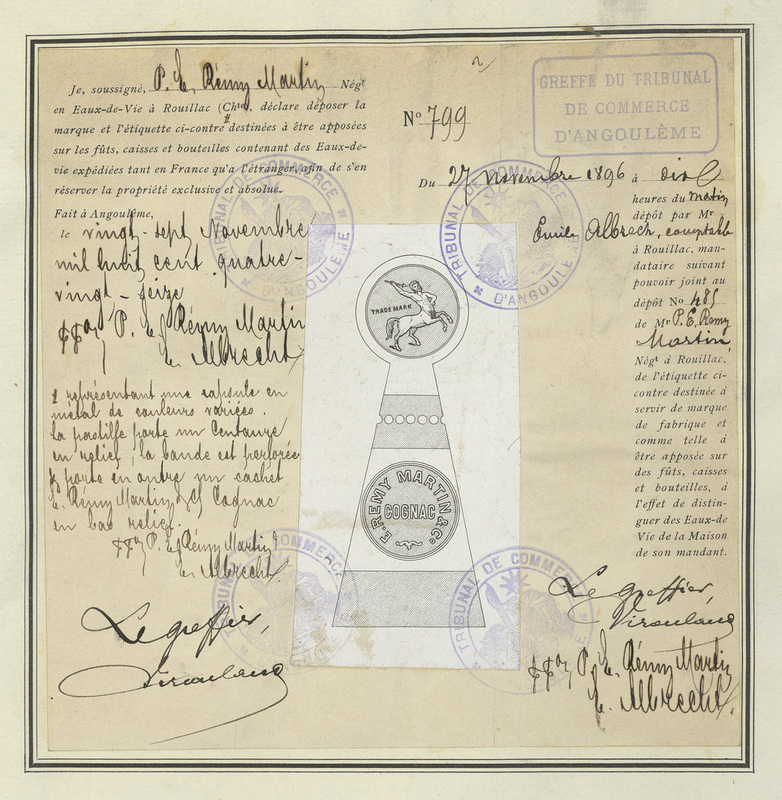 Je, soussigné, P. E. Rémy Martin Négt
en Eaux-de-Vie à Rouillac (Chte), déclare déposer la
marque et l'étiquette ci-contre destinées à être apposées
sur les fûts, caisses et bouteilles contenant des Eaux-de-
vie expédiées tant en France qu'a l'étranger, afin de s'en
réserver la propriété exclusive et absolue.
Fait à Angoulême,
le vingt-sept Novembre
mil huit cent quatre-
vingt-seize
P. E. Rémy Martin
E. Albrecht
représentant une capsule en
métal de couleurs variées.
La pastille porte un Centaure
en relief, la bande est perforée
& porte en outre un cachet
E. Rémy Martin & Co Cognac
en bas relief.
P. E. Rémy Martin
E. Albrecht
Le greffier,
TRADE MARK
E. REMY MARTIN & Co
COGNAC
No 799
GREFFE DU TRIBUNAL
DE COMMERCE
D'ANGOULÊME
Du 27 Novembre 1896 à dix
heures du matin
dépôt par Mr
Emile Albrecht, comptable
à Rouillac, man-
dataire suivant
pouvoir joint au
dépôt No 485
de Mr P. E. Remy
Martin,
Négt à Rouillac,
de l'étiquette ci-
contre destinée à
servir de marque
de fabrique et
comme telle à
être apposée sur
des fûts, caisses
et bouteilles, à
l'effet de distin-
guer des Eaux-de
Vie de la Maison
de son mandant.
Le greffier,
P. E. Rémy Martin
E. Albrecht
TRIBUNAL DE COMMERCE D'ANGOULEME
TRIBUNAL DE COMMERCE D'ANGOULEME
TRIBUNAL DE COMMERCE
TRIBUNAL DE COMMERCE